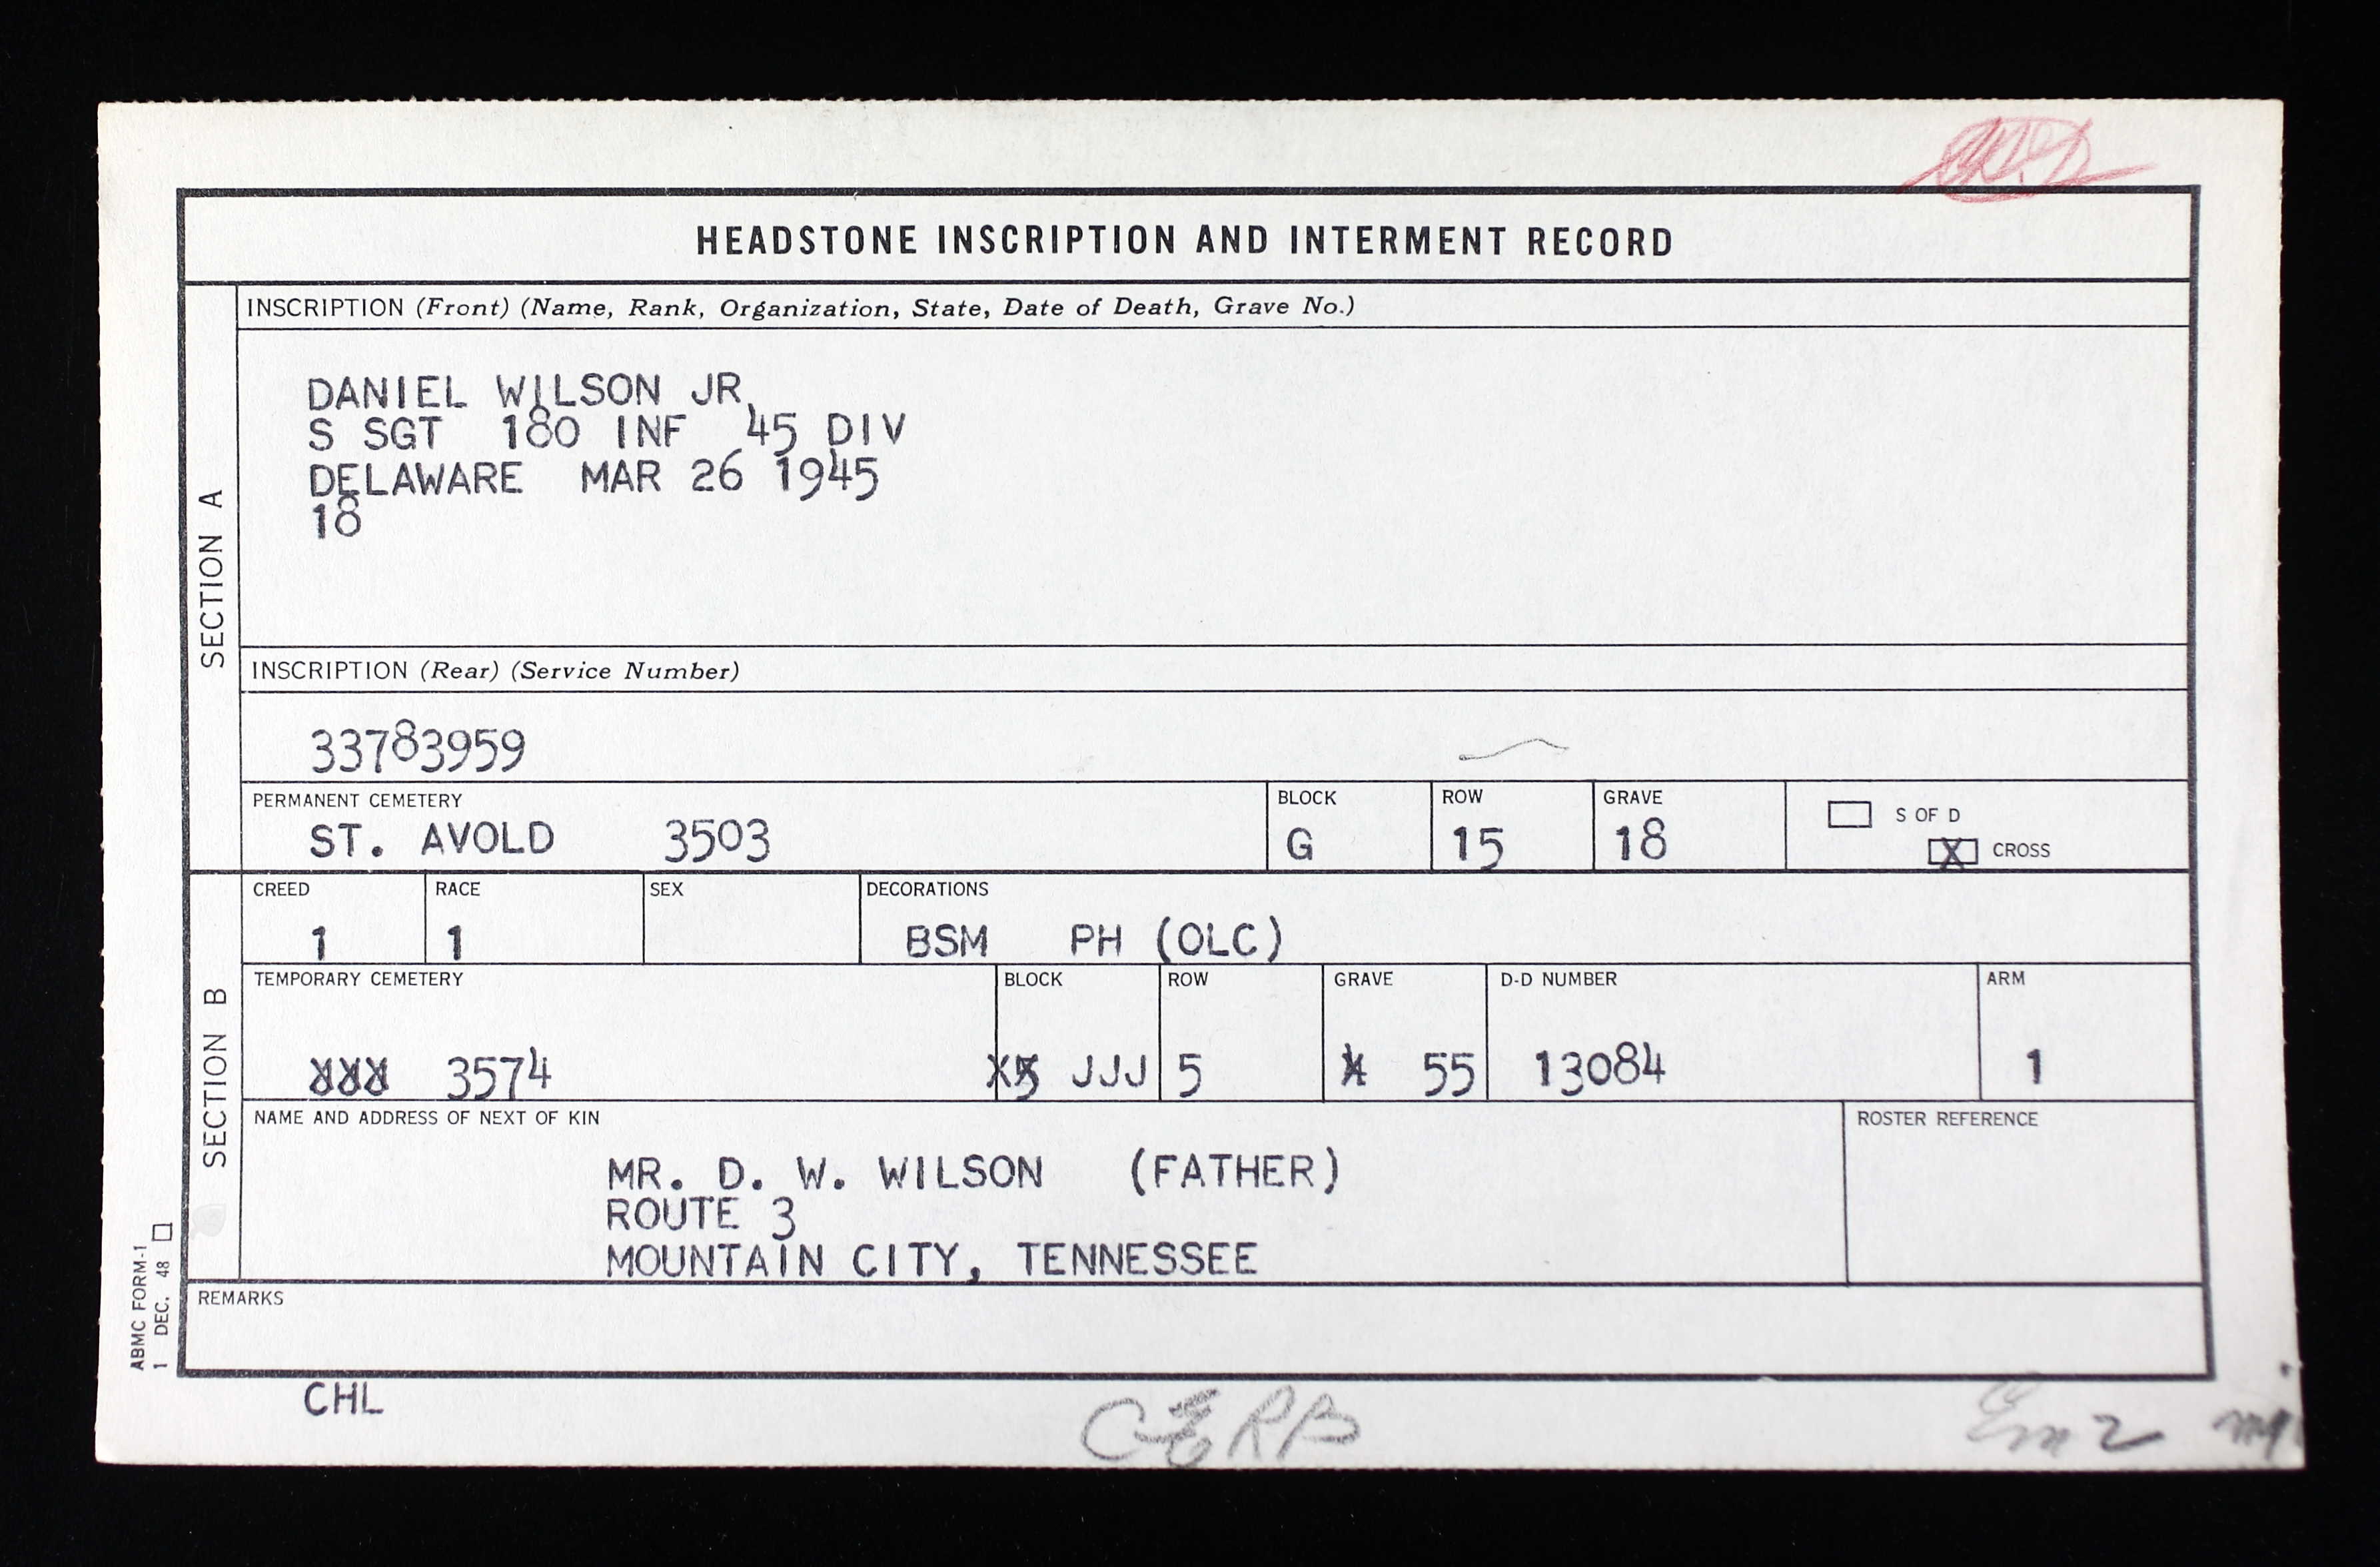 HEADSTONE INSCRIPTION AND INTERMENT RECORD
SECTION A
INSCRIPTION (Front) (Name, Rank, Organization, State, Date of Death, Grave No.)
DANIEL WILSON JR
S SGT 180 INF 45 DIV
DELAWARE MAR 26 1945
18
INSCRIPTION (Rear) (Service Number)
33783959
PERMANENT CEMETERY BLOCK ROW GRAVE S OF D
ST. AVOLD 3503 G 15 18 X CROSS
SECTION B
CREED RACE SEX DECORATIONS
1 1 BSM PH (OLC)
TEMPORARY CEMETERY BLOCK ROW GRAVE D-D NUMBER ARM
3574 JJJ 5 55 13084 1
NAME AND ADDRESS OF NEXT OF KIN ROSTER REFERENCE
MR. D. W. WILSON (FATHER)
ROUTE 3
MOUNTAIN CITY, TENNESSEE
REMARKS
ABMC FORM-1
1 DEC. 48
CHL